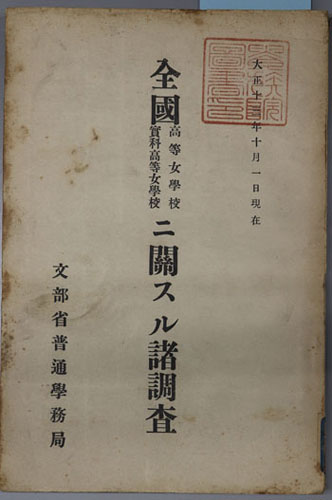 大正十二年十月一日現在
全國高等女學校
實科高等女學校ニ關スル諸調査
文部省普通學務局